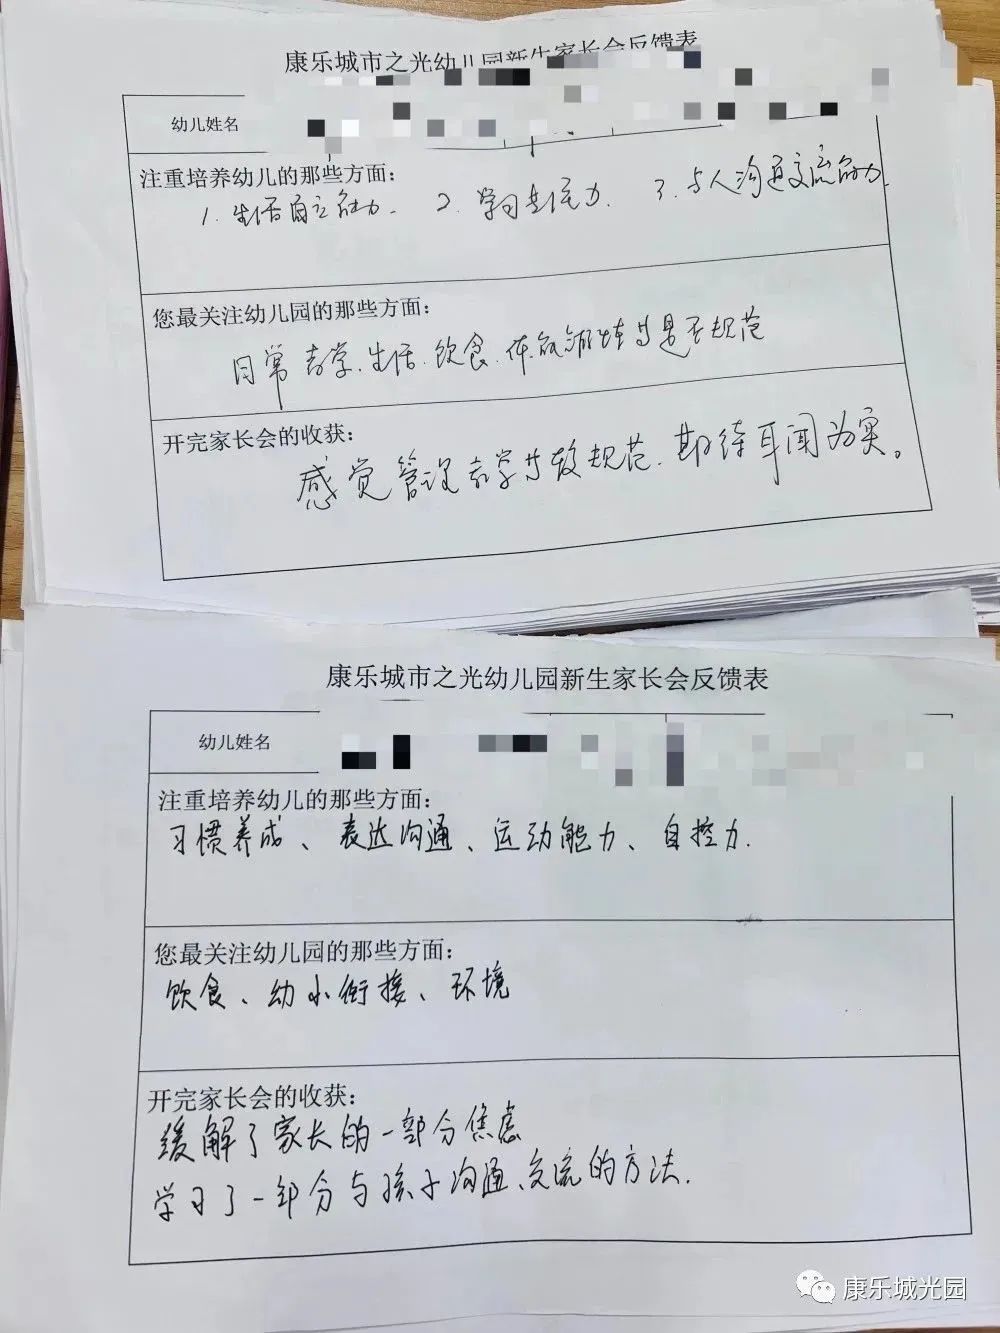 康乐城市之光幼儿园新生家长会反馈表
幼儿姓名
注重培养幼儿的那些方面:
1. 生活自立能力. 2. 学习专注力. 3. 与人沟通交流能力.
您最关注幼儿园的那些方面:
日常教学.生活.饮食.体能 是否规范
开完家长会的收获:
感觉管理教学 较规范.期待耳闻为实。
康乐城市之光幼儿园新生家长会反馈表
幼儿姓名
注重培养幼儿的那些方面:
习惯养成、表达沟通、运动能力、自控力.
您最关注幼儿园的那些方面:
饮食、幼小衔接、环境
开完家长会的收获:
缓解了家长的一部分焦虑
学习了一部分与孩子沟通、交流的方法.
康乐城光园